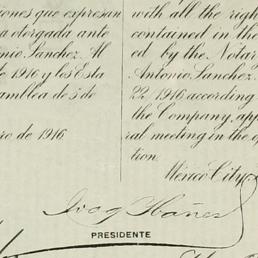 ciones que expresan
a otorgada ante
nio Sanchez. Al
1916 y los Esta
amblea de 5 de
ro de 1916
with all the righ
contained in the
ed by the Notar
Antonio Sanchez.
22, 1916 according
the Company, app
ral meeting in the
tion
Mexico City
PRESIDENTE